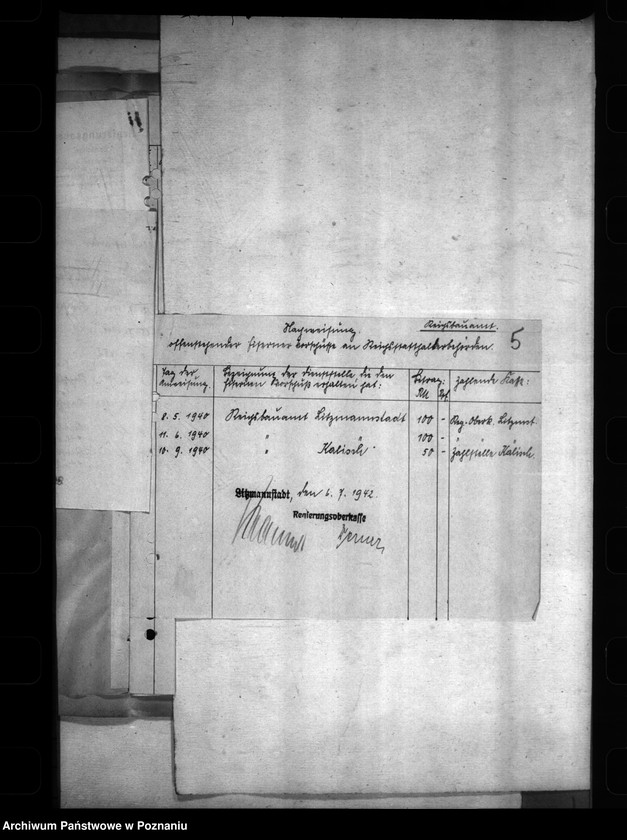 Reichsbauamt.
5
Nachweisung
offenstehender eiserner Vorschüsse an Reichsstatthalterbehörden.
Tag der Anweisung.
Bezeichnung der Dienststelle die den eisernen Vorschuß erhalten hat:
Betrag: RM Rpf
Zahlende Kasse:
8. 5. 1940 Reichsbauamt Litzmannstadt 100 - Reg. Oberk. Litzmst.
11. 6. 1940 " 100 -
10. 9. 1940 " Kalisch 50 - Zahlstelle Kalisch.
Litzmannstadt, den 6. 7. 1942.
Regierungsoberkasse
Archiwum Państwowe w Poznaniu